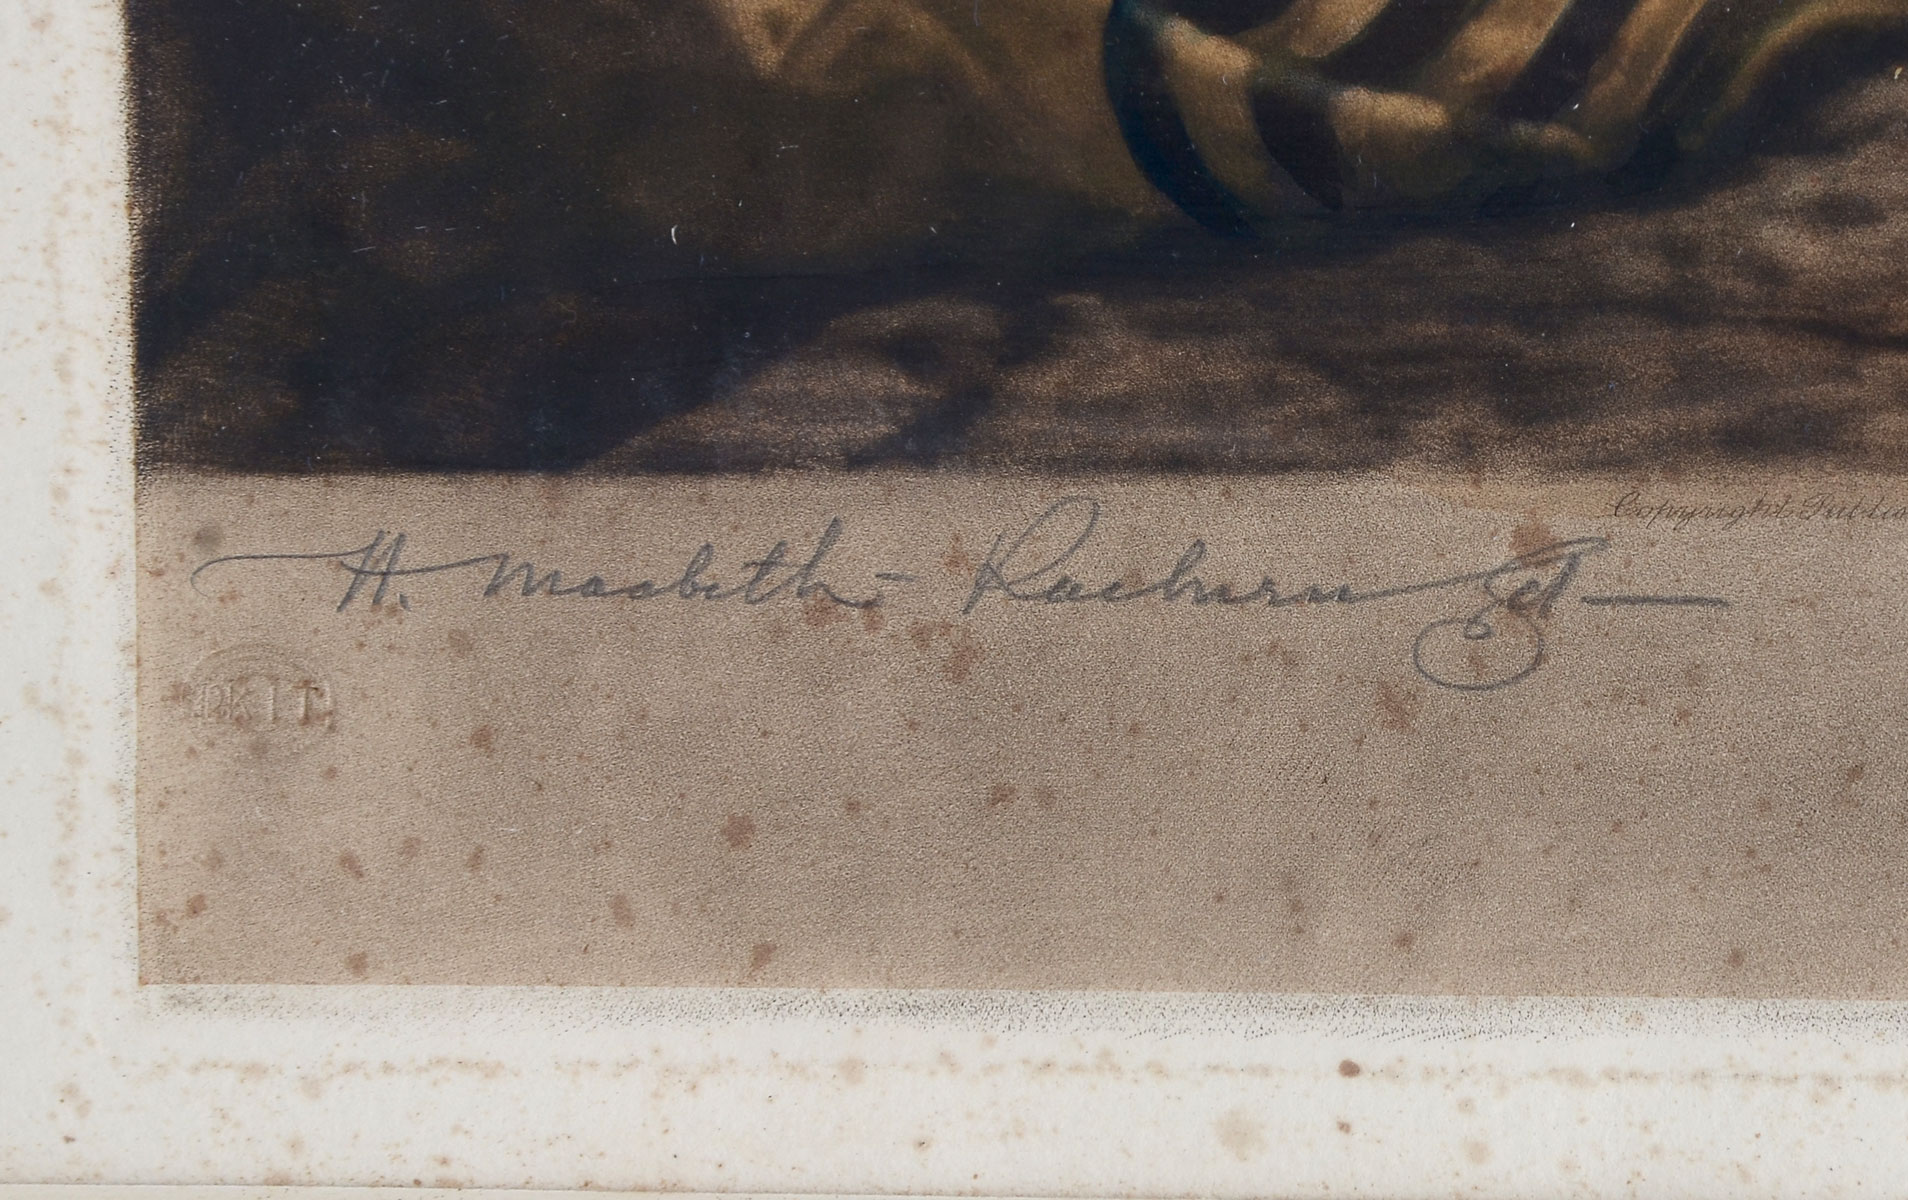 Copyright. Publis
H. Macbeth - Raeburn
KIT